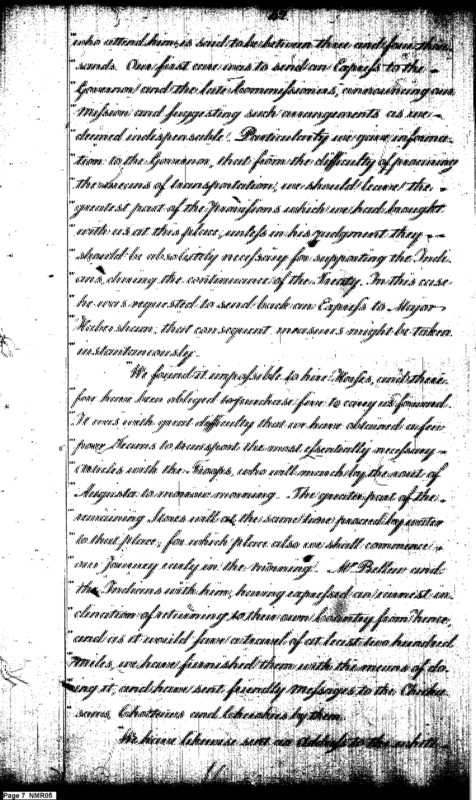 who attend him, is said to be between three and four thou-
"sands. Our first care was to send an Express to the
"Governor and the late Commissioners, announcing our
"mission and suggesting such arrangements as we
"deemed indispensable. Particularly we gave informa-
"tion to the Governor, that from the difficulty of procuring
"the means of transportation, we should leave the
"greatest part of the provisions which we had brought
"with us at this place, unless in his judgment they
"should be absolutely necessary for supporting the Indi-
"ans, during the continuance of the Treaty. In this case
"he was requested to send back an Express to Major
"Habersham, that consequent measures might be taken
"instantaneously.
"We found it impossible to hire Horses, and there-
"fore have been obliged to purchase five to carry us forward.
"It was with great difficulty that we have obtained a few
"poor Teams to transport the most essentially necessary
"articles with the Troops, who will march by the rout of
"Augusta to morrow morning. The greater part of the
"remaining Stores will at the same time proceed by water
"to that place, for which place also we shall commence
"our Journey early in the morning. Mr. Bellew and
"the Indians with him, having expressed an earnest in-
"clination of returning to their own Country from hence,
"and as it would save a travel of at least two hundred
"miles, we have furnished them with the means of do-
"ing it, and have sent friendly messages to the Chicka-
"saws, Choctaws and Cherokees by them.
"We have likewise sent an Address to the white
Page 7 NMR05